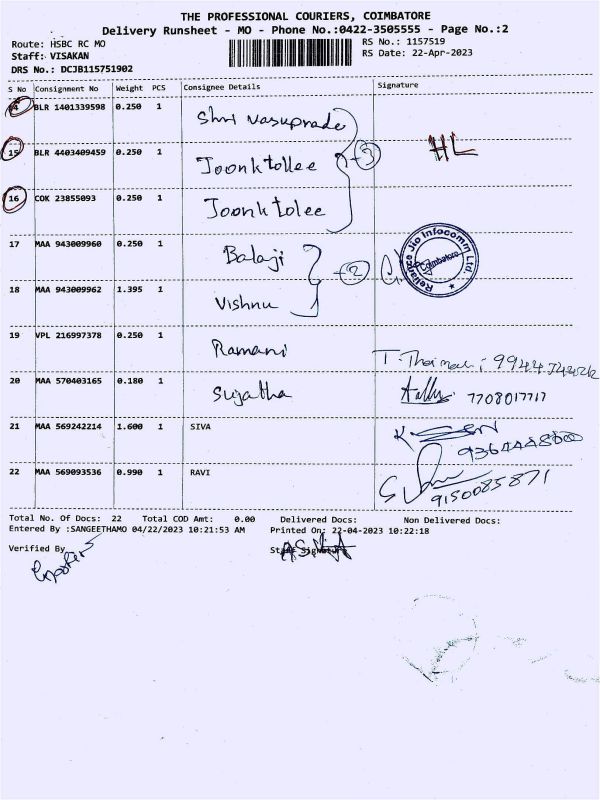 THE PROFESSIONAL COURIERS, COIMBATORE
Delivery Runsheet - MO - Phone No.:0422-3505555 - Page No.:2
Route: HSBC RC MO
RS No.: 1157519
Staff: VISAKAN
RS Date: 22-Apr-2023
DRS No.: DCJB115751902
S No Consignment No Weight PCS Consignee Details Signature
14 BLR 1401339598 0.250 1 Shri
15 BLR 4403409459 0.250 1 Joonktollee 3 HL
16 COK 23855093 0.250 1 Joonktolee
17 MAA 943009960 0.250 1 Balaji 2 Reliance Jio Infocomm Ltd. Coimbatore
18 MAA 943009962 1.395 1 Vishnu
19 VPL 216997378 0.250 1 Ramani
20 MAA 570403165 0.180 1 Sujatha 7708017717
21 MAA 569242214 1.600 1 SIVA
22 MAA 569093536 0.990 1 RAVI 9150085871
Total No. Of Docs: 22 Total COD Amt: 0.00 Delivered Docs: Non Delivered Docs:
Entered By :SANGEETHAMO 04/22/2023 10:21:53 AM Printed On: 22-04-2023 10:22:18
Verified By Staff Signature